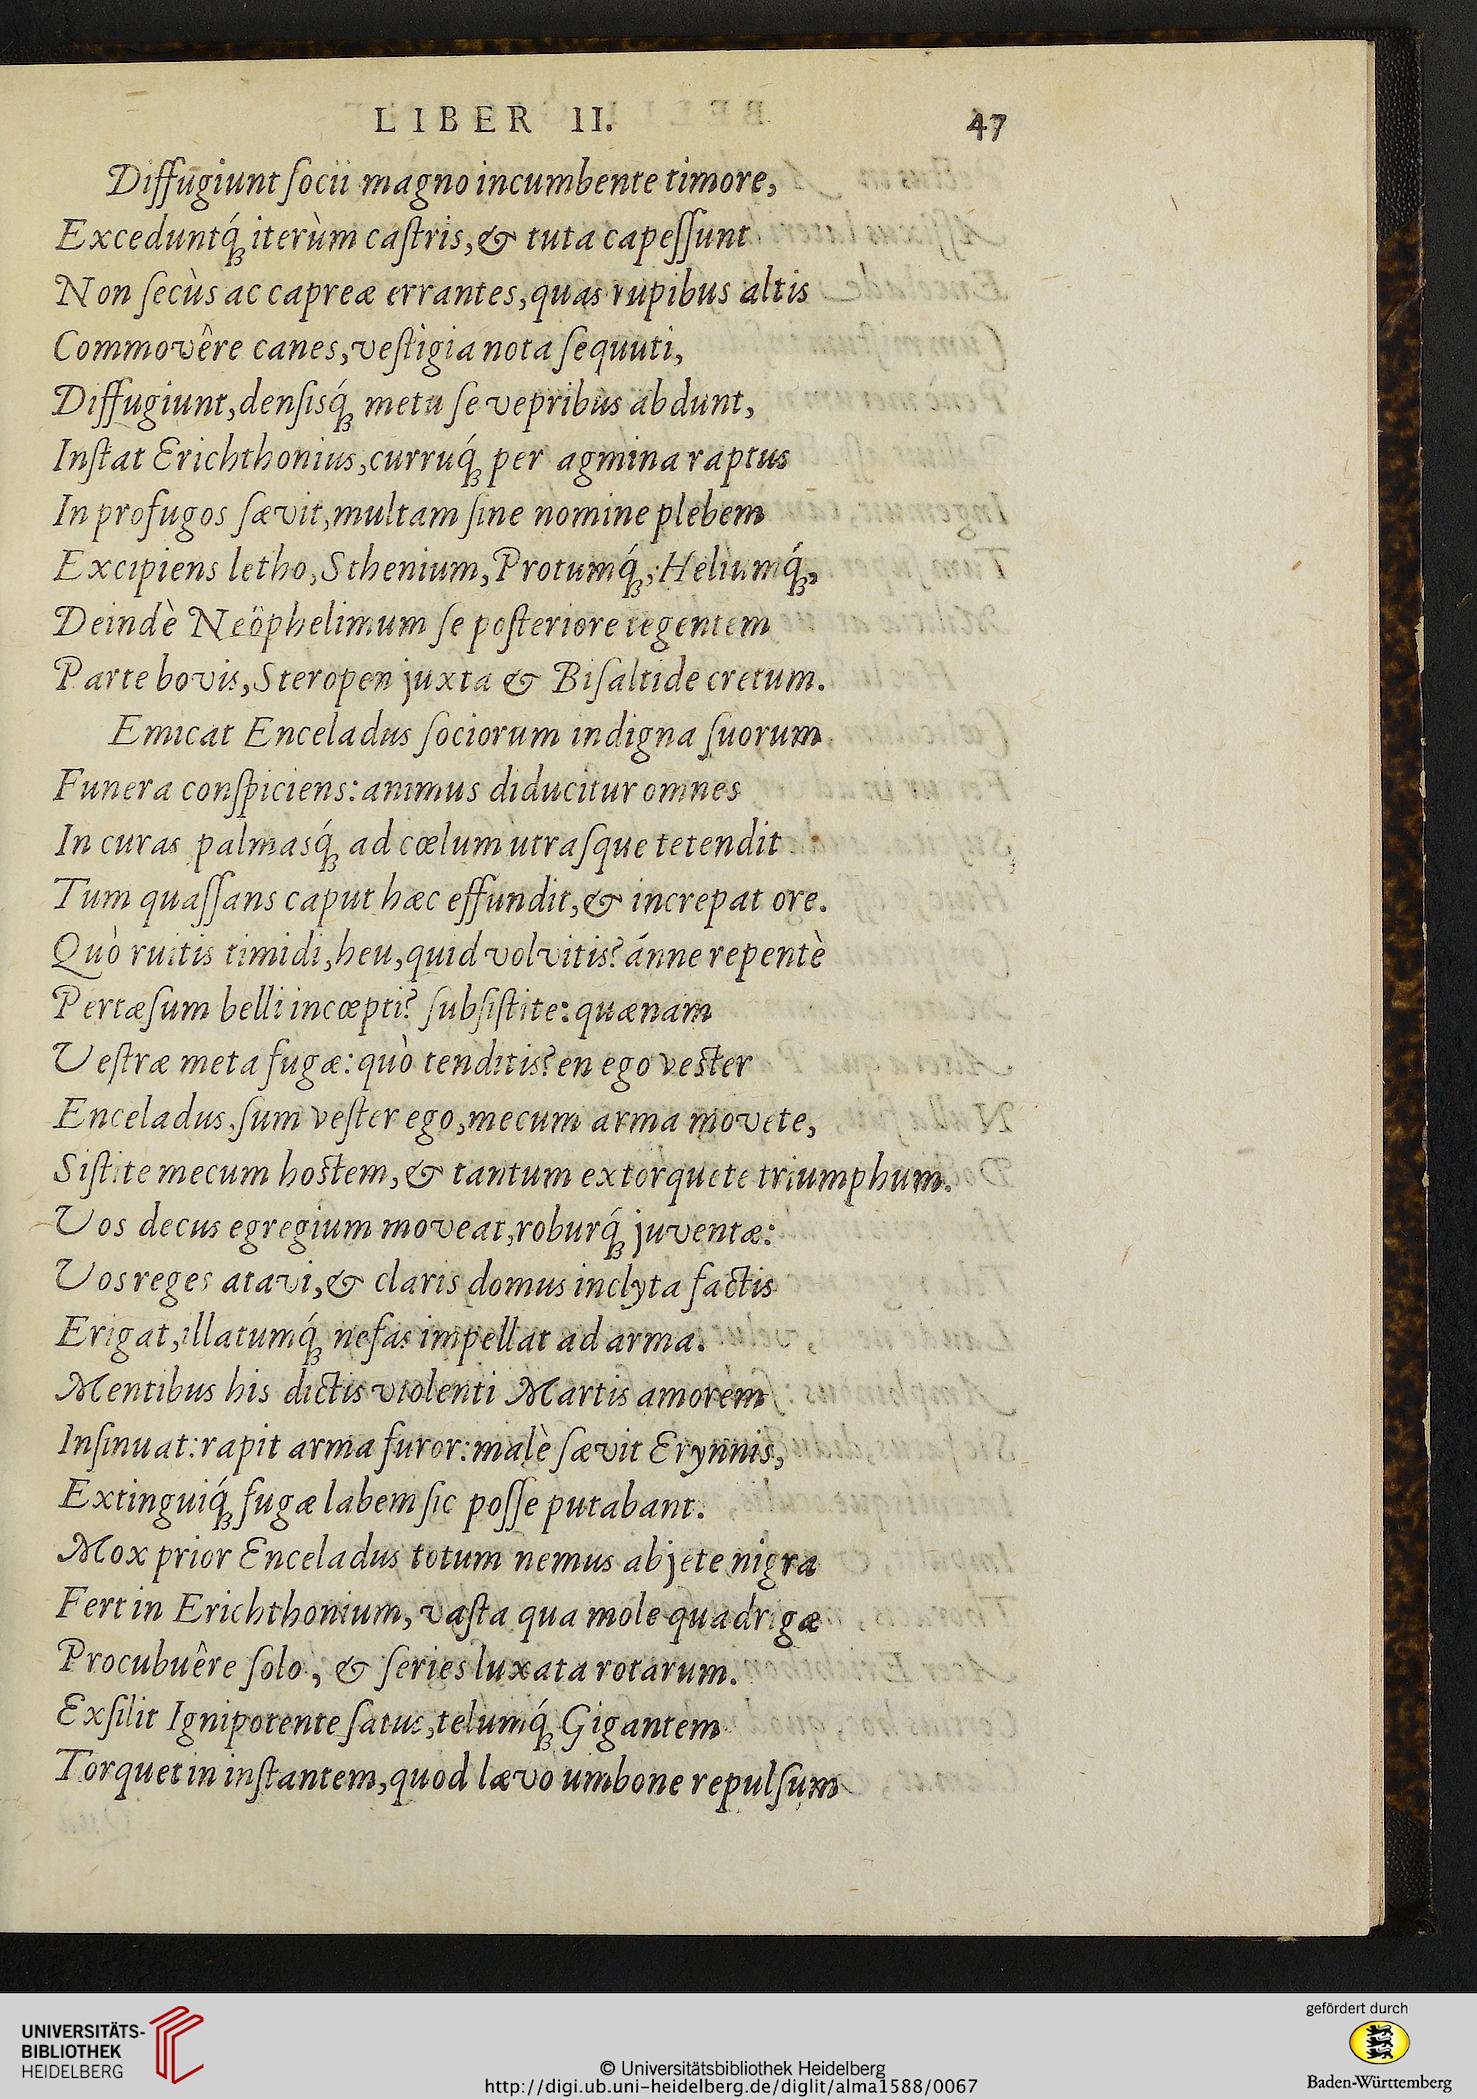 LIBER II. 47
Diffugiunt ſocii magno incumbente timore,
Exceduntq́ꝫ iterùm caſtris, & tuta capeſſunt
Non ſecùs ac capreæ errantes, quas rupibus altis
Commovêre canes, veſtigia nota ſequuti,
Diffugiunt, denſisq́ꝫ metu ſe vepribus abdunt,
Inſtat Erichthonius, curruq́ꝫ per agmina raptus
In profugos ſævit, multam ſine nomine plebem
Excipiens letho, Sthenium, Protumq́ꝫ, Heliumq́ꝫ,
Deindè Neöphelimum ſe poſteriore tegentem
Parte bovis, Steropen juxta & Biſaltide cretum.
Emicat Enceladus ſociorum indigna ſuorum
Funera conſpiciens: animus diducitur omnes
In curas palmasq́ꝫ ad cœlum utraſque tetendit
Tum quaſſans caput hæc effundit, & increpat ore.
Quò ruitis timidi, heu, quid volvitis? ánne repentè
Pertæſum belli incœpti? ſubſiſtite: quænam
Veſtræ meta fugæ: quò tenditis? en ego veſter
Enceladus, ſum veſter ego, mecum arma movete,
Siſtite mecum hoſtem, & tantum extorquete triumphum.
Vos decus egregium moveat, roburq́ꝫ juventæ:
Vos reges atavi, & claris domus inclyta factis
Erigat, illatumq́ꝫ nefas impellat ad arma.
Mentibus his dictis violenti Martis amorem
Inſinuat: rapit arma furor: malè ſævit Erynnis,
Extinguiq́ꝫ fugæ labem ſic poſſe putabant.
Mox prior Enceladus totum nemus abjete nigra
Fert in Erichthonium, vaſta qua mole quadrigæ
Procubuêre ſolo, & ſeries luxata rotarum.
Exſilit Ignipotente ſatus, telumq́ꝫ Gigantem
Torquet in inſtantem, quod lævo umbone repulſum
UNIVERSITÄTS-
BIBLIOTHEK
HEIDELBERG
© Universitätsbibliothek Heidelberg
http://digi.ub.uni-heidelberg.de/diglit/alma1588/0067
gefördert durch
Baden-Württemberg